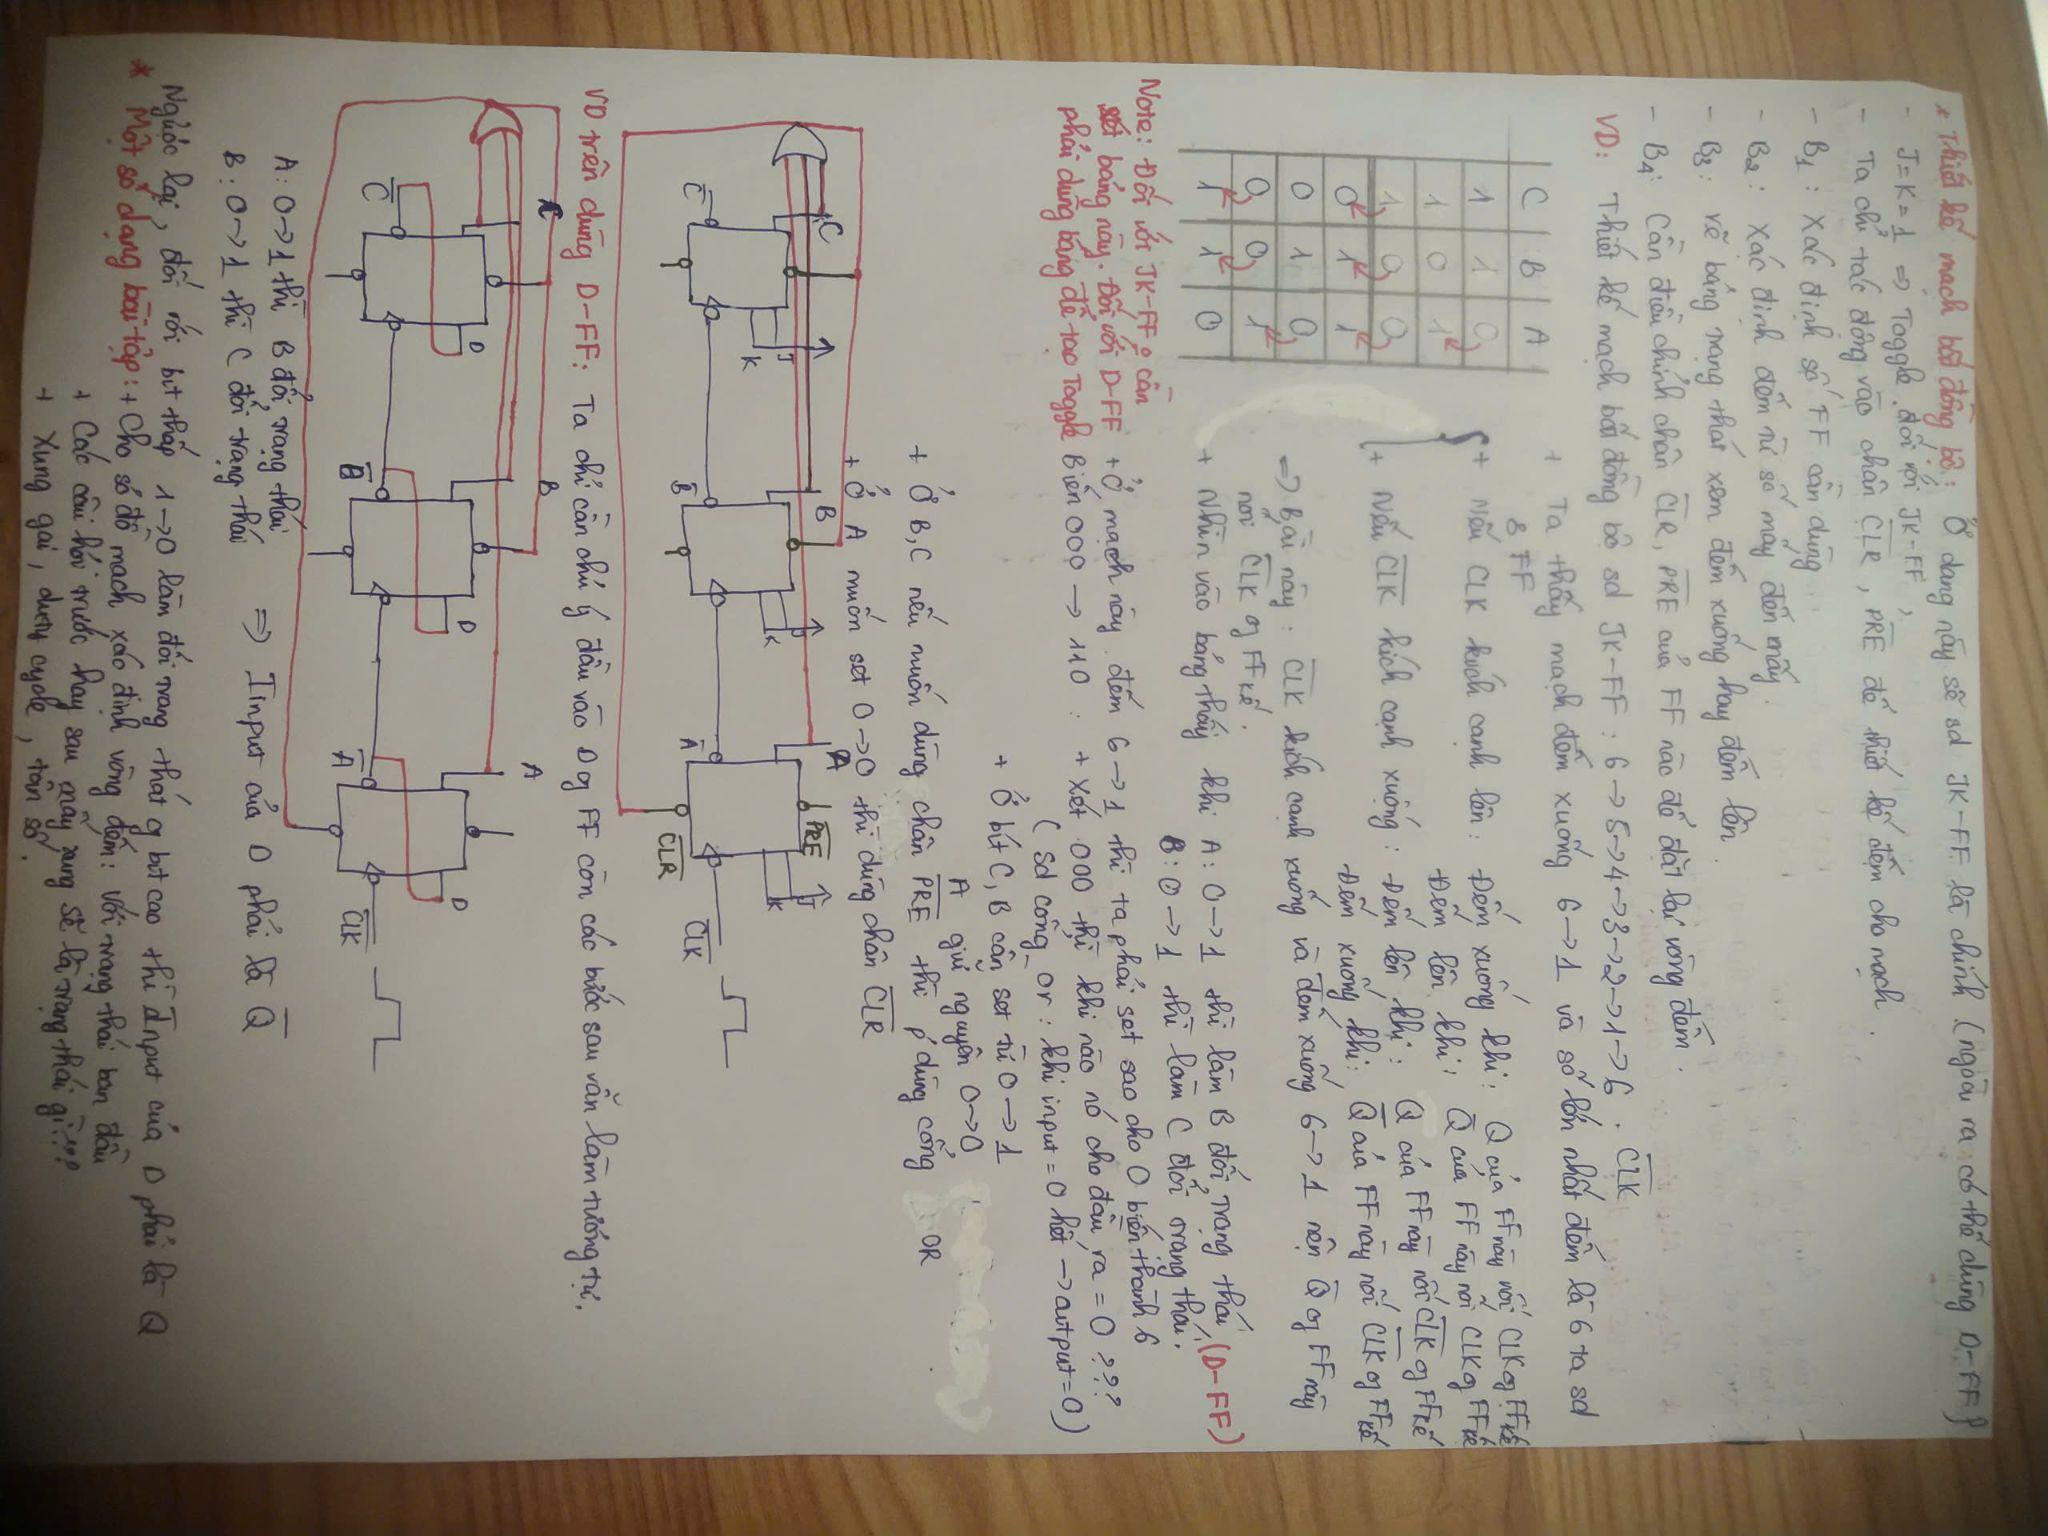 * Thiết kế mạch bất đồng bộ: Ở dạng này sẽ sd JK-FF là chính (ngoài ra có thể dùng D-FF)
- J=K=1 => Toggle đối với JK-FF,
- Ta chỉ tác động vào chân CLR, PRE để thiết kế đếm cho mạch.
- B1: Xác định số FF cần dùng
- B2: Xác định đếm từ số mấy đến mấy.
- B3: vẽ bảng trạng thái xem đếm xuống hay đếm lên.
- B4: Cần điều chỉnh chân CLR, PRE của FF nào để đặt lại vòng đếm.
VD: Thiết kế mạch bất đồng bộ sd JK-FF: 6→5→4→3→2→1→6. CLK
+ Ta thấy mạch đếm xuống 6→1 và số lớn nhất đếm là 6 ta sd
3 FF
+ Nếu CLK kích cạnh lên: Đếm xuống khi: Q của FF này nối CLK of FF kế
Đếm lên khi: Q của FF này nối CLK of FF kế
+ Nếu CLK kích cạnh xuống: Đếm lên khi: Q của FF này nối CLK of FF kế
Đếm xuống khi: Q của FF này nối CLK of FF kế
=> Bài này: CLK kích cạnh xuống và đếm xuống 6→1 nên Q of FF này
nối CLK of FF kế.
+ Nhìn vào bảng thấy khi A: 0→1 thì làm B đổi trạng thái (D-FF)
B: 0→1 thì làm C đổi trạng thái.
C B A
1 1 0
1 0 1
1 0 0
0 1 1
0 1 0
0 0 1
1 1 0
Note: Đối với JK-FF cần
xét bảng này. Đối với D-FF
phải dùng bảng để tạo Toggle
+ Ở mạch này đếm 6→1 thì ta phải set sao cho 0 biến thành 6
Biến 000 → 110: + Xét 000 thì khi nào nó cho đầu ra = 0 ???
(Sd cổng or: khi input = 0 hết → output = 0)
+ Ở bit C, B cần set từ 0→1
A giữ nguyên 0→0
+ Ở B, C nếu muốn dùng chân PRE thì p' dùng cổng OR
+ Ở A muốn set 0→0 thì dùng chân CLR
C B A PRE
J J J
K K K
C B A CLK
CLR
VD trên dùng D-FF: Ta chỉ cần chú ý đầu vào D of FF còn các bước sau vẫn làm tương tự.
C B A
D D D
C B A CLK
A: 0→1 thì B đổi trạng thái
B: 0→1 thì C đổi trạng thái => Input của D phải là Q
Ngược lại, đối với bit thấp 1→0 làm đổi trạng thái of bit cao thì Input của D phải là Q
* Một số dạng bài tập: + Cho sơ đồ mạch xác định vòng đếm: Với trạng thái ban đầu
+ Các câu hỏi trước hay sau mấy xung sẽ là trạng thái gì???
+ Xung gai, duty cycle, tần số.